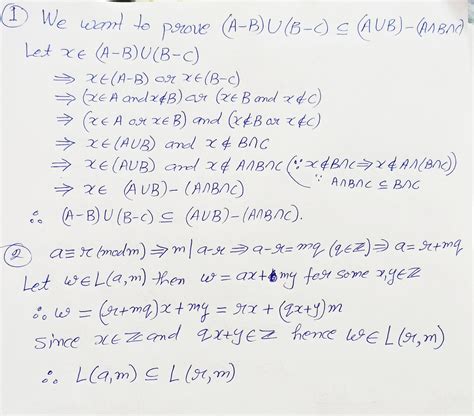 ① We want to prove (A-B)∪(B-C) ⊆ (A∪B)-(A∩B∩C)
Let x∈ (A-B)∪(B-C)
⇒ x∈(A-B) or x∈(B-C)
⇒ (x∈A and x∉B) or (x∈B and x∉C)
⇒ (x∈A or x∈B) and (x∉B or x∉C)
⇒ x∈(A∪B) and x∉ B∩C
⇒ x∈(A∪B) and x∉ A∩B∩C (∵ x∉B∩C ⇒ x∉ A∩(B∩C)
⇒ x∈ (A∪B)-(A∩B∩C) ∵ A∩B∩C ⊆ B∩C
∴ (A-B)∪(B-C) ⊆ (A∪B)-(A∩B∩C).
② a≡r(mod m) ⇒ m|a-r ⇒ a-r=mq (q∈ℤ) ⇒ a=r+mq
Let w∈L(a,m) then w=ax+my for some x,y∈ℤ
∴ w = (r+mq)x+my = rx+(qx+y)m
Since x∈ℤ and qx+y∈ℤ hence w∈L(r,m)
∴ L(a,m) ⊆ L(r,m)